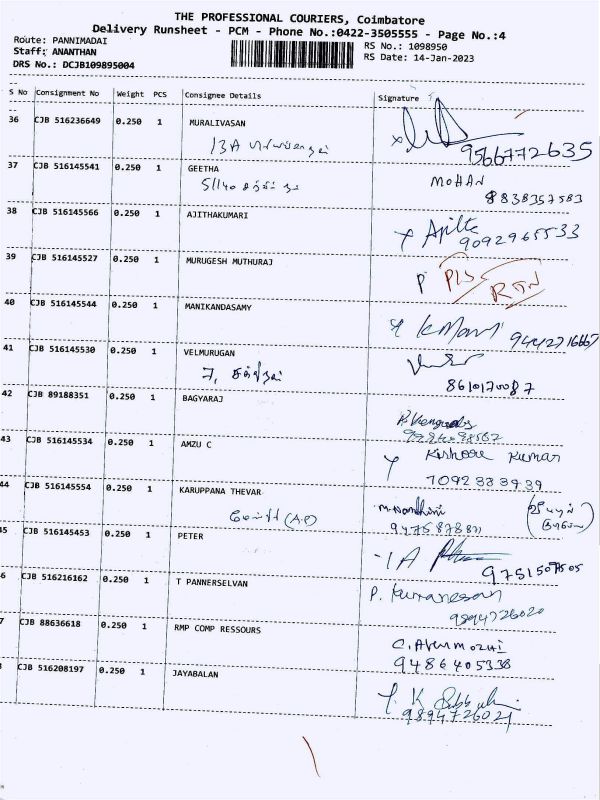 THE PROFESSIONAL COURIERS, Coimbatore
Delivery Runsheet - PCM - Phone No.:0422-3505555 - Page No.:4
Route: PANNIMADAI
RS No.: 1098950
Staff: ANANTHAN
RS Date: 14-Jan-2023
DRS No.: DCJB109895004
S No Consignment No Weight PCS Consignee Details Signature
36 CJB 516236649 0.250 1 MURALIVASAN
13A
9566772635
37 CJB 516145541 0.250 1 GEETHA MOHAN
5/140
8838357583
38 CJB 516145566 0.250 1 AJITHAKUMARI
9092965533
39 CJB 516145527 0.250 1 MURUGESH MUTHURAJ
P RTN
40 CJB 516145544 0.250 1 MANIKANDASAMY
K Mani 9442716667
41 CJB 516145530 0.250 1 VELMURUGAN
8610170087
42 CJB 89188351 0.250 1 BAGYARAJ
43 CJB 516145534 0.250 1 AMZU C Kishore Kumar
7092333939
44 CJB 516145554 0.250 1 KARUPPANA THEVAR M. Nandhini
(A.P)
5 CJB 516145453 0.250 1 PETER
9751507505
6 CJB 516216162 0.250 1 T PANNERSELVAN P. Kumaresan
9894726020
7 CJB 88636618 0.250 1 RMP COMP RESSOURS
9486405338
CJB 516208197 0.250 1 JAYABALAN
9894726021